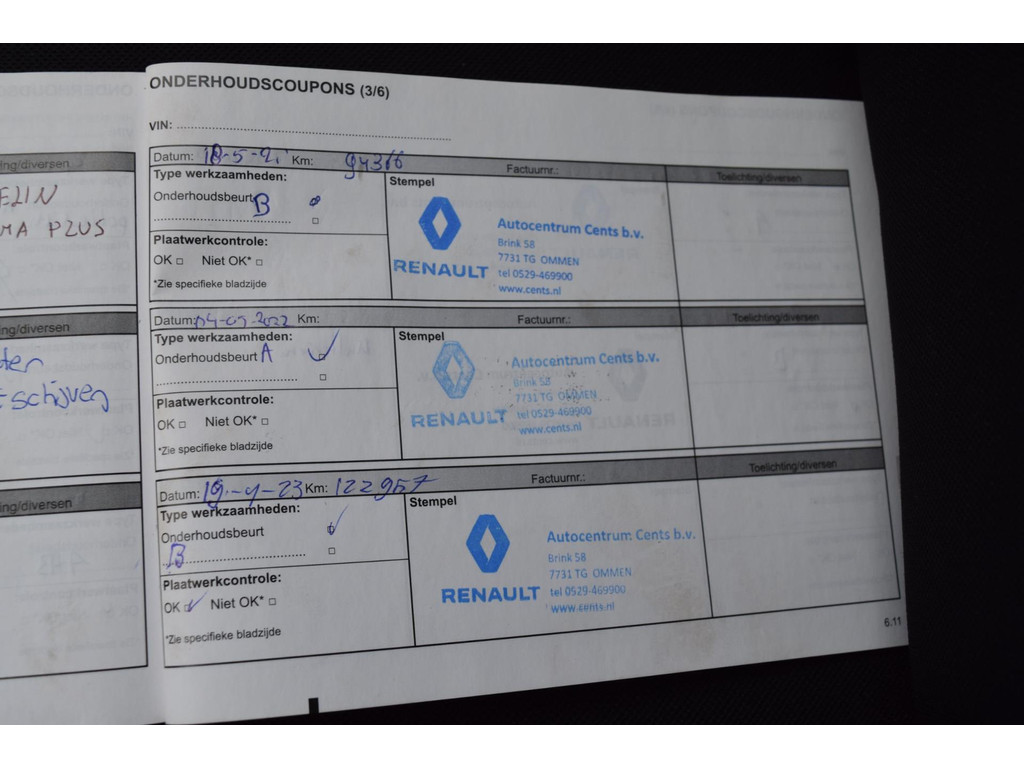 ng/diversen
ELIN
MA PLUS
ng/diversen
schijven
ng/diversen
ONDERHOUDSCOUPONS (3/6)
VIN:
Datum: 18-5-21 Km: 94376 Factuurnr.: Toelichting/diversen
Type werkzaamheden:
Onderhoudsbeurt B
Plaatwerkcontrole:
OK Niet OK*
*Zie specifieke bladzijde
Stempel
RENAULT
Autocentrum Cents b.v.
Brink 58
7731 TG OMMEN
tel 0529-469900
www.cents.nl
Datum: 04-05-2022 Km: Factuurnr.: Toelichting/diversen
Type werkzaamheden:
Onderhoudsbeurt A
Plaatwerkcontrole:
OK Niet OK*
*Zie specifieke bladzijde
Stempel
RENAULT
Autocentrum Cents b.v.
Brink 58
7731 TG OMMEN
tel 0529-469900
www.cents.nl
Datum: 19-4-23 Km: 122957 Factuurnr.: Toelichting/diversen
Type werkzaamheden:
Onderhoudsbeurt
B
Plaatwerkcontrole:
OK Niet OK*
*Zie specifieke bladzijde
Stempel
RENAULT
Autocentrum Cents b.v.
Brink 58
7731 TG OMMEN
tel 0529-469900
www.cents.nl
6.11